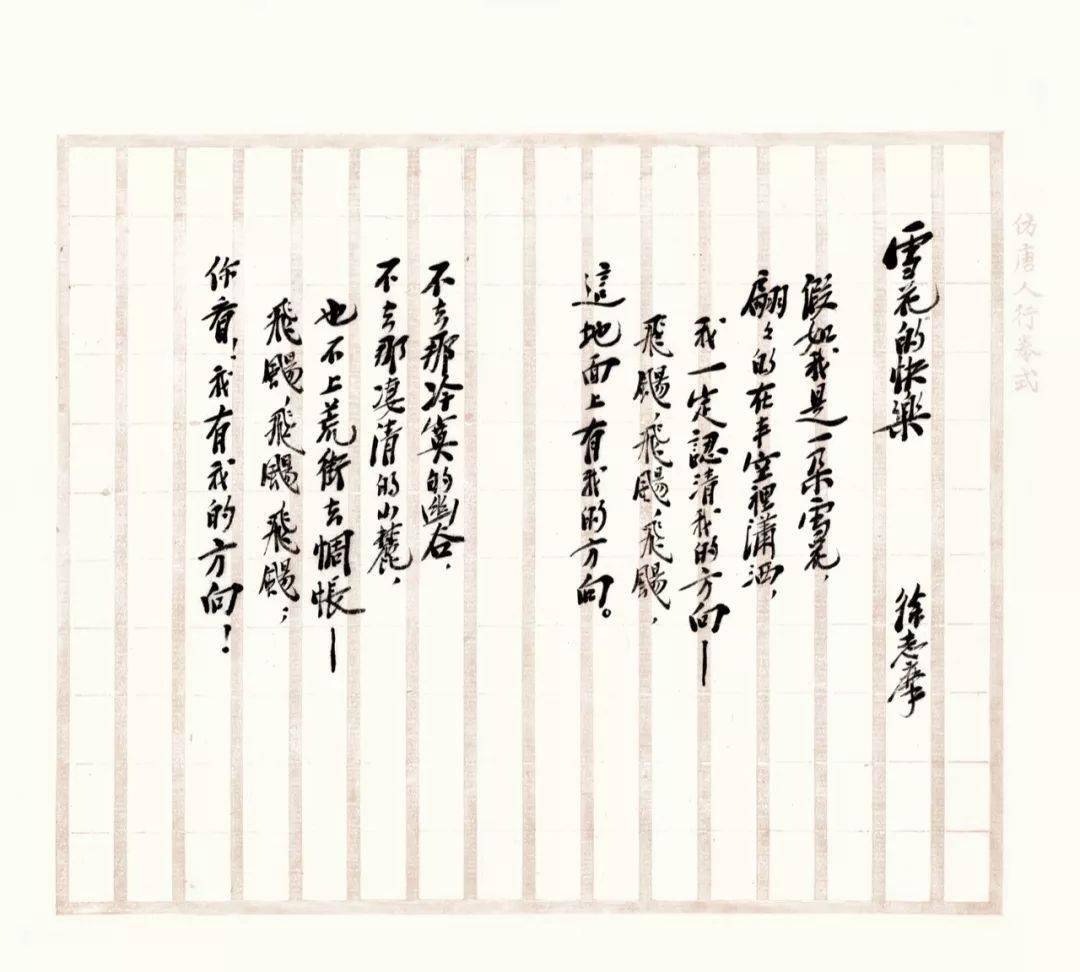 仿唐人行卷式
雪花的快樂
徐志摩
假如我是一朵雪花，
翩々的在半空裡瀟洒，
我一定認清我的方向—
飛颺，飛颺，飛颺，
這地面上有我的方向。
不去那冷寞的幽谷，
不去那凄清的山麓，
也不上荒街去惆悵—
飛颺，飛颺，飛颺；
你看！我有我的方向！